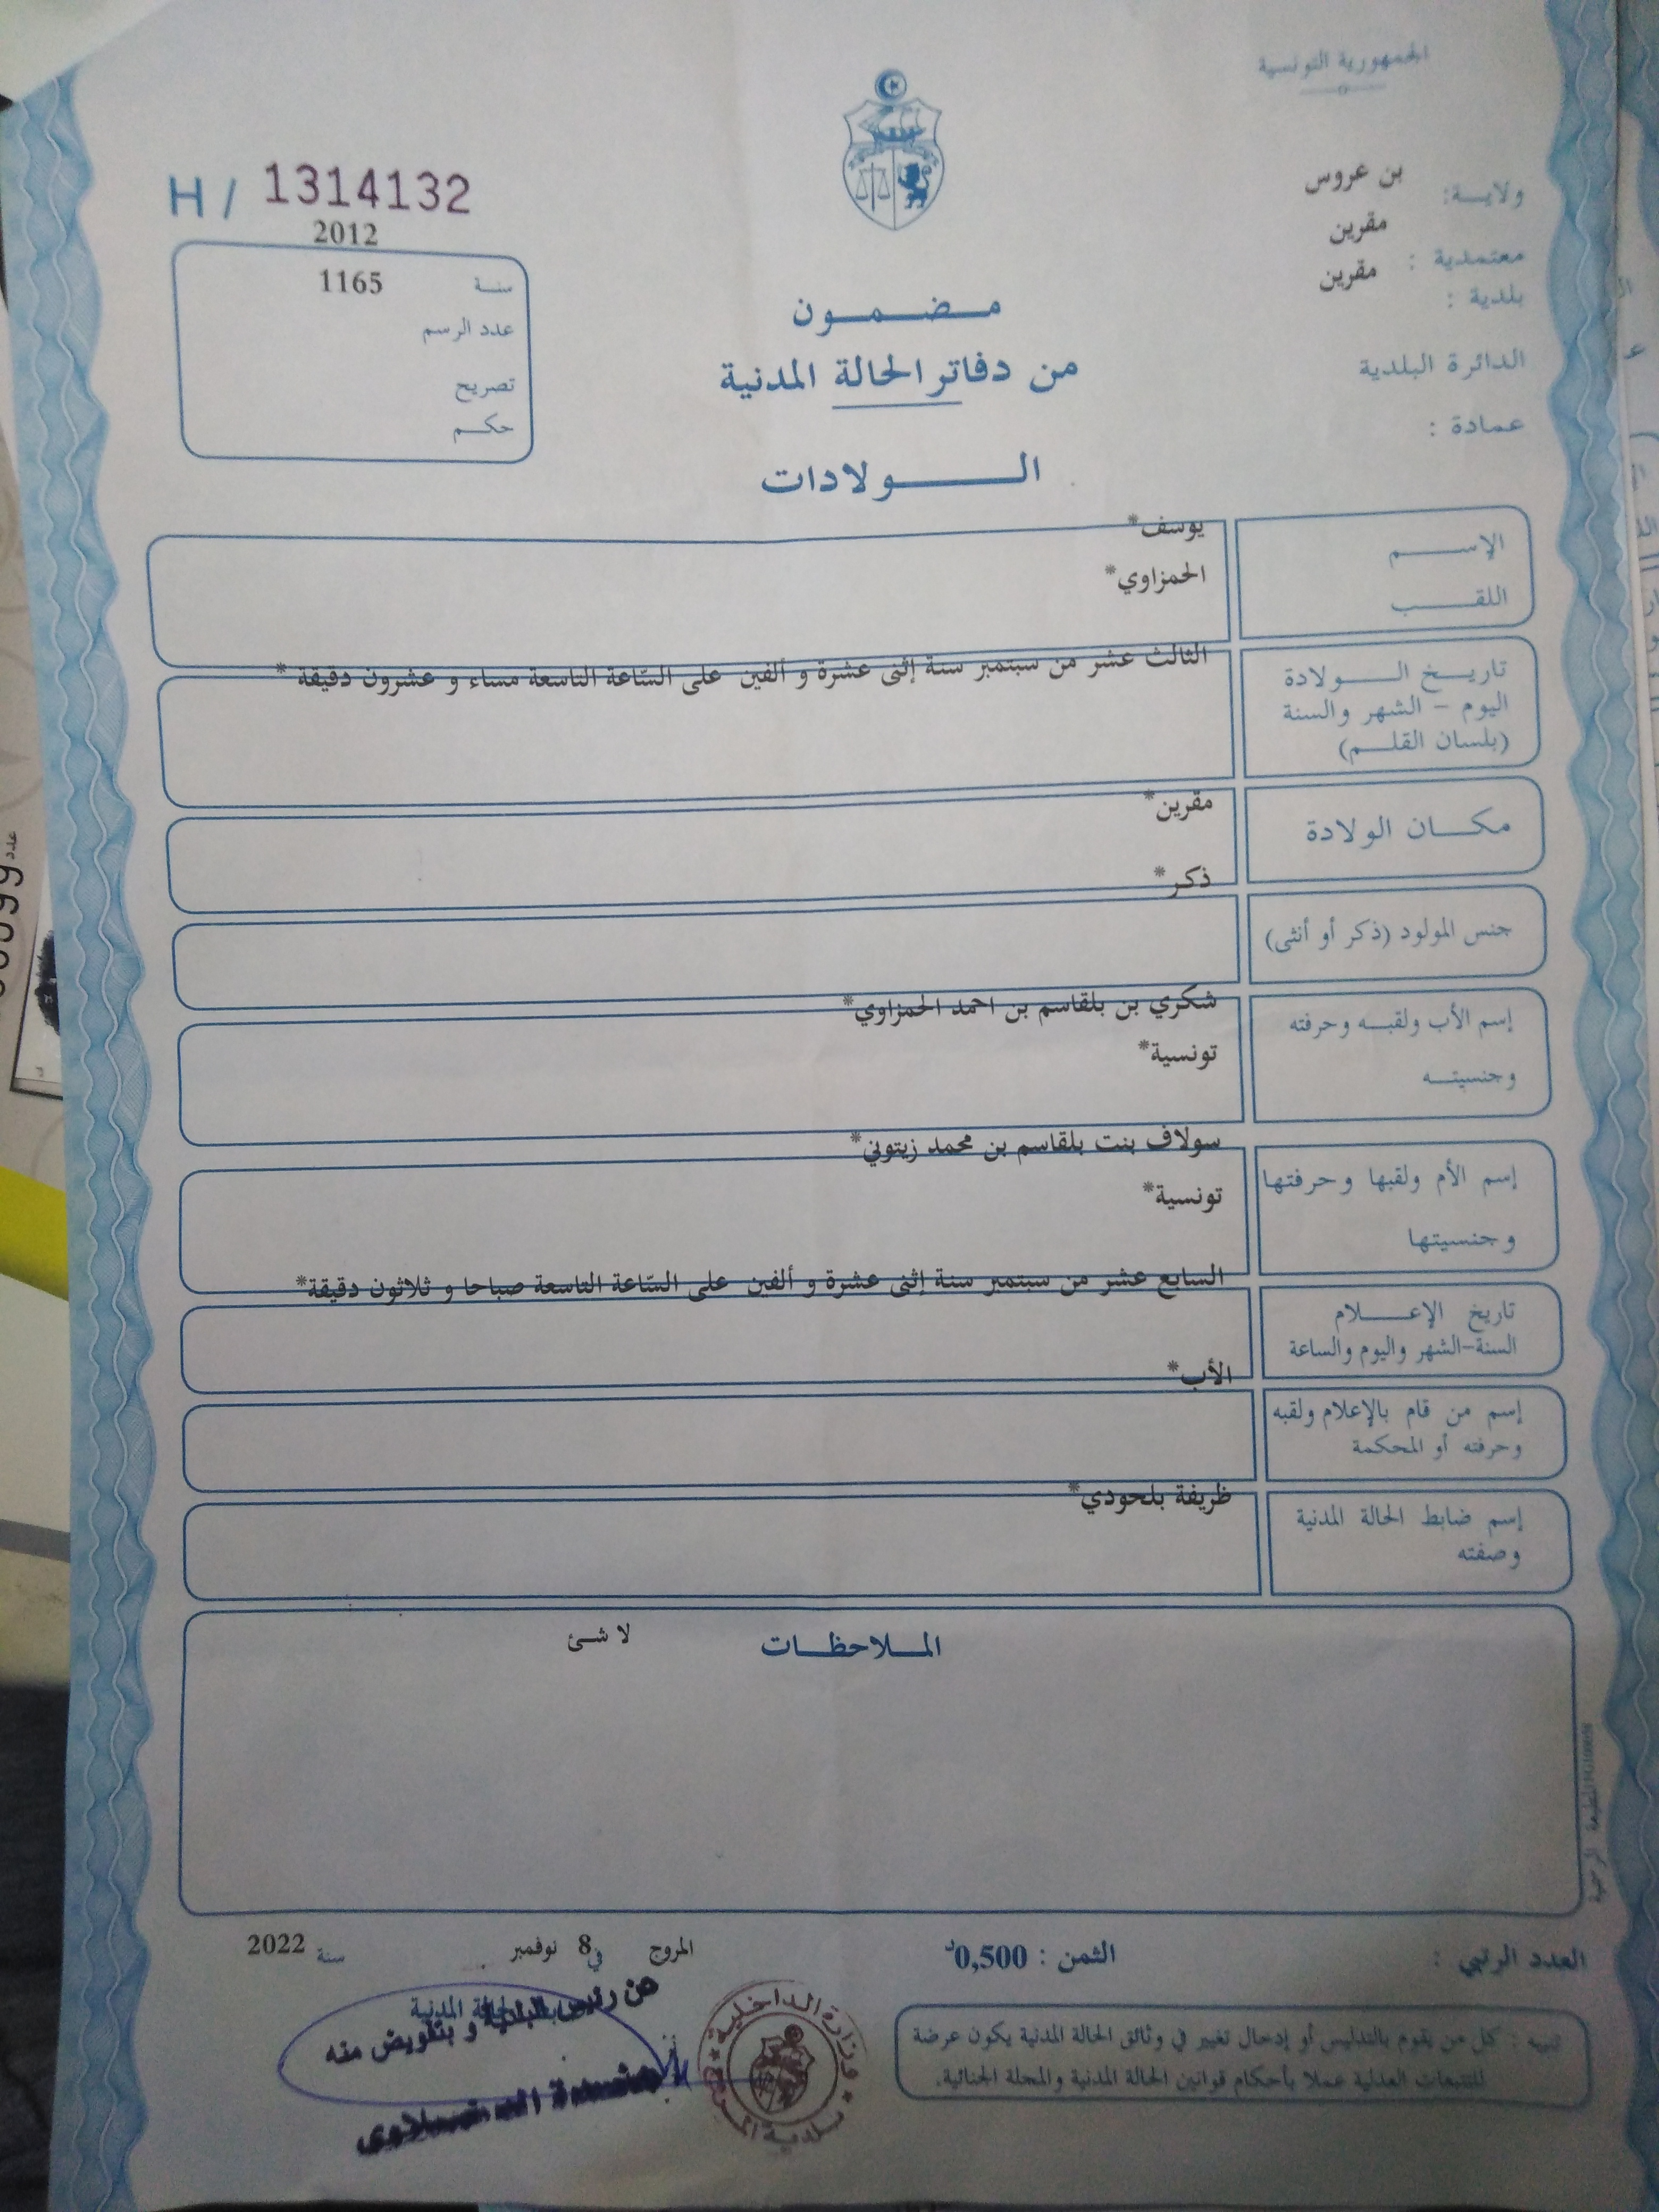 الجمهورية التونسية
ولايـــة: بن عروس
معتمدية : مقرين
بلدية : مقرين
الدائرة البلدية
عمادة :
H / 1314132
2012
سنـة 1165
عدد الرسم
تصريح
حكـم
مـضـمـون
من دفاتر الحالة المدنية
الـولادات
الإسـم يوسف*
اللقـب الحمزاوي*
تاريـخ الـولادة الثالث عشر من سبتمبر سنة إثنى عشرة و ألفين على السّاعة التاسعة مساء و عشرون دقيقة *
اليوم - الشهر والسنة
(بلسان القلـم)
مكـان الولادة مقرين*
ذكر*
جنس المولود (ذكر أو أنثى)
إسم الأب ولقبـه وحرفته شكري بن بلقاسم بن احمد الحمزاوي*
وجنسيتـه تونسية*
إسم الأم ولقبها وحرفتها سولاف بنت بلقاسم بن محمد زيتوني*
وجنسيتها تونسية*
تاريخ الإعـلام السابع عشر من سبتمبر سنة إثنى عشرة و ألفين على السّاعة التاسعة صباحا و ثلاثون دقيقة*
السنة-الشهر واليوم والساعة
الأب*
إسم من قام بالإعلام ولقبه
وحرفته أو المحكمة
إسم ضابط الحالة المدنية ظريفة بلحودي*
وصفته
المـلاحظـات لا شئ
المطبعة الرسمية
العدد الرتبي :
الثمن : 0,500د
المروج في 8 نوفمبر سنة 2022
تنبيه : كل من يقوم بالتدليس أو إدخال تغيير في وثائق الحالة المدنية يكون عرضة
للتتبعات العدلية عملا بأحكام قوانين الحالة المدنية والمجلة الجنائية.
عن رئيس البلدية و بتفويض منه
وزارة الداخلية
بلدية المروج